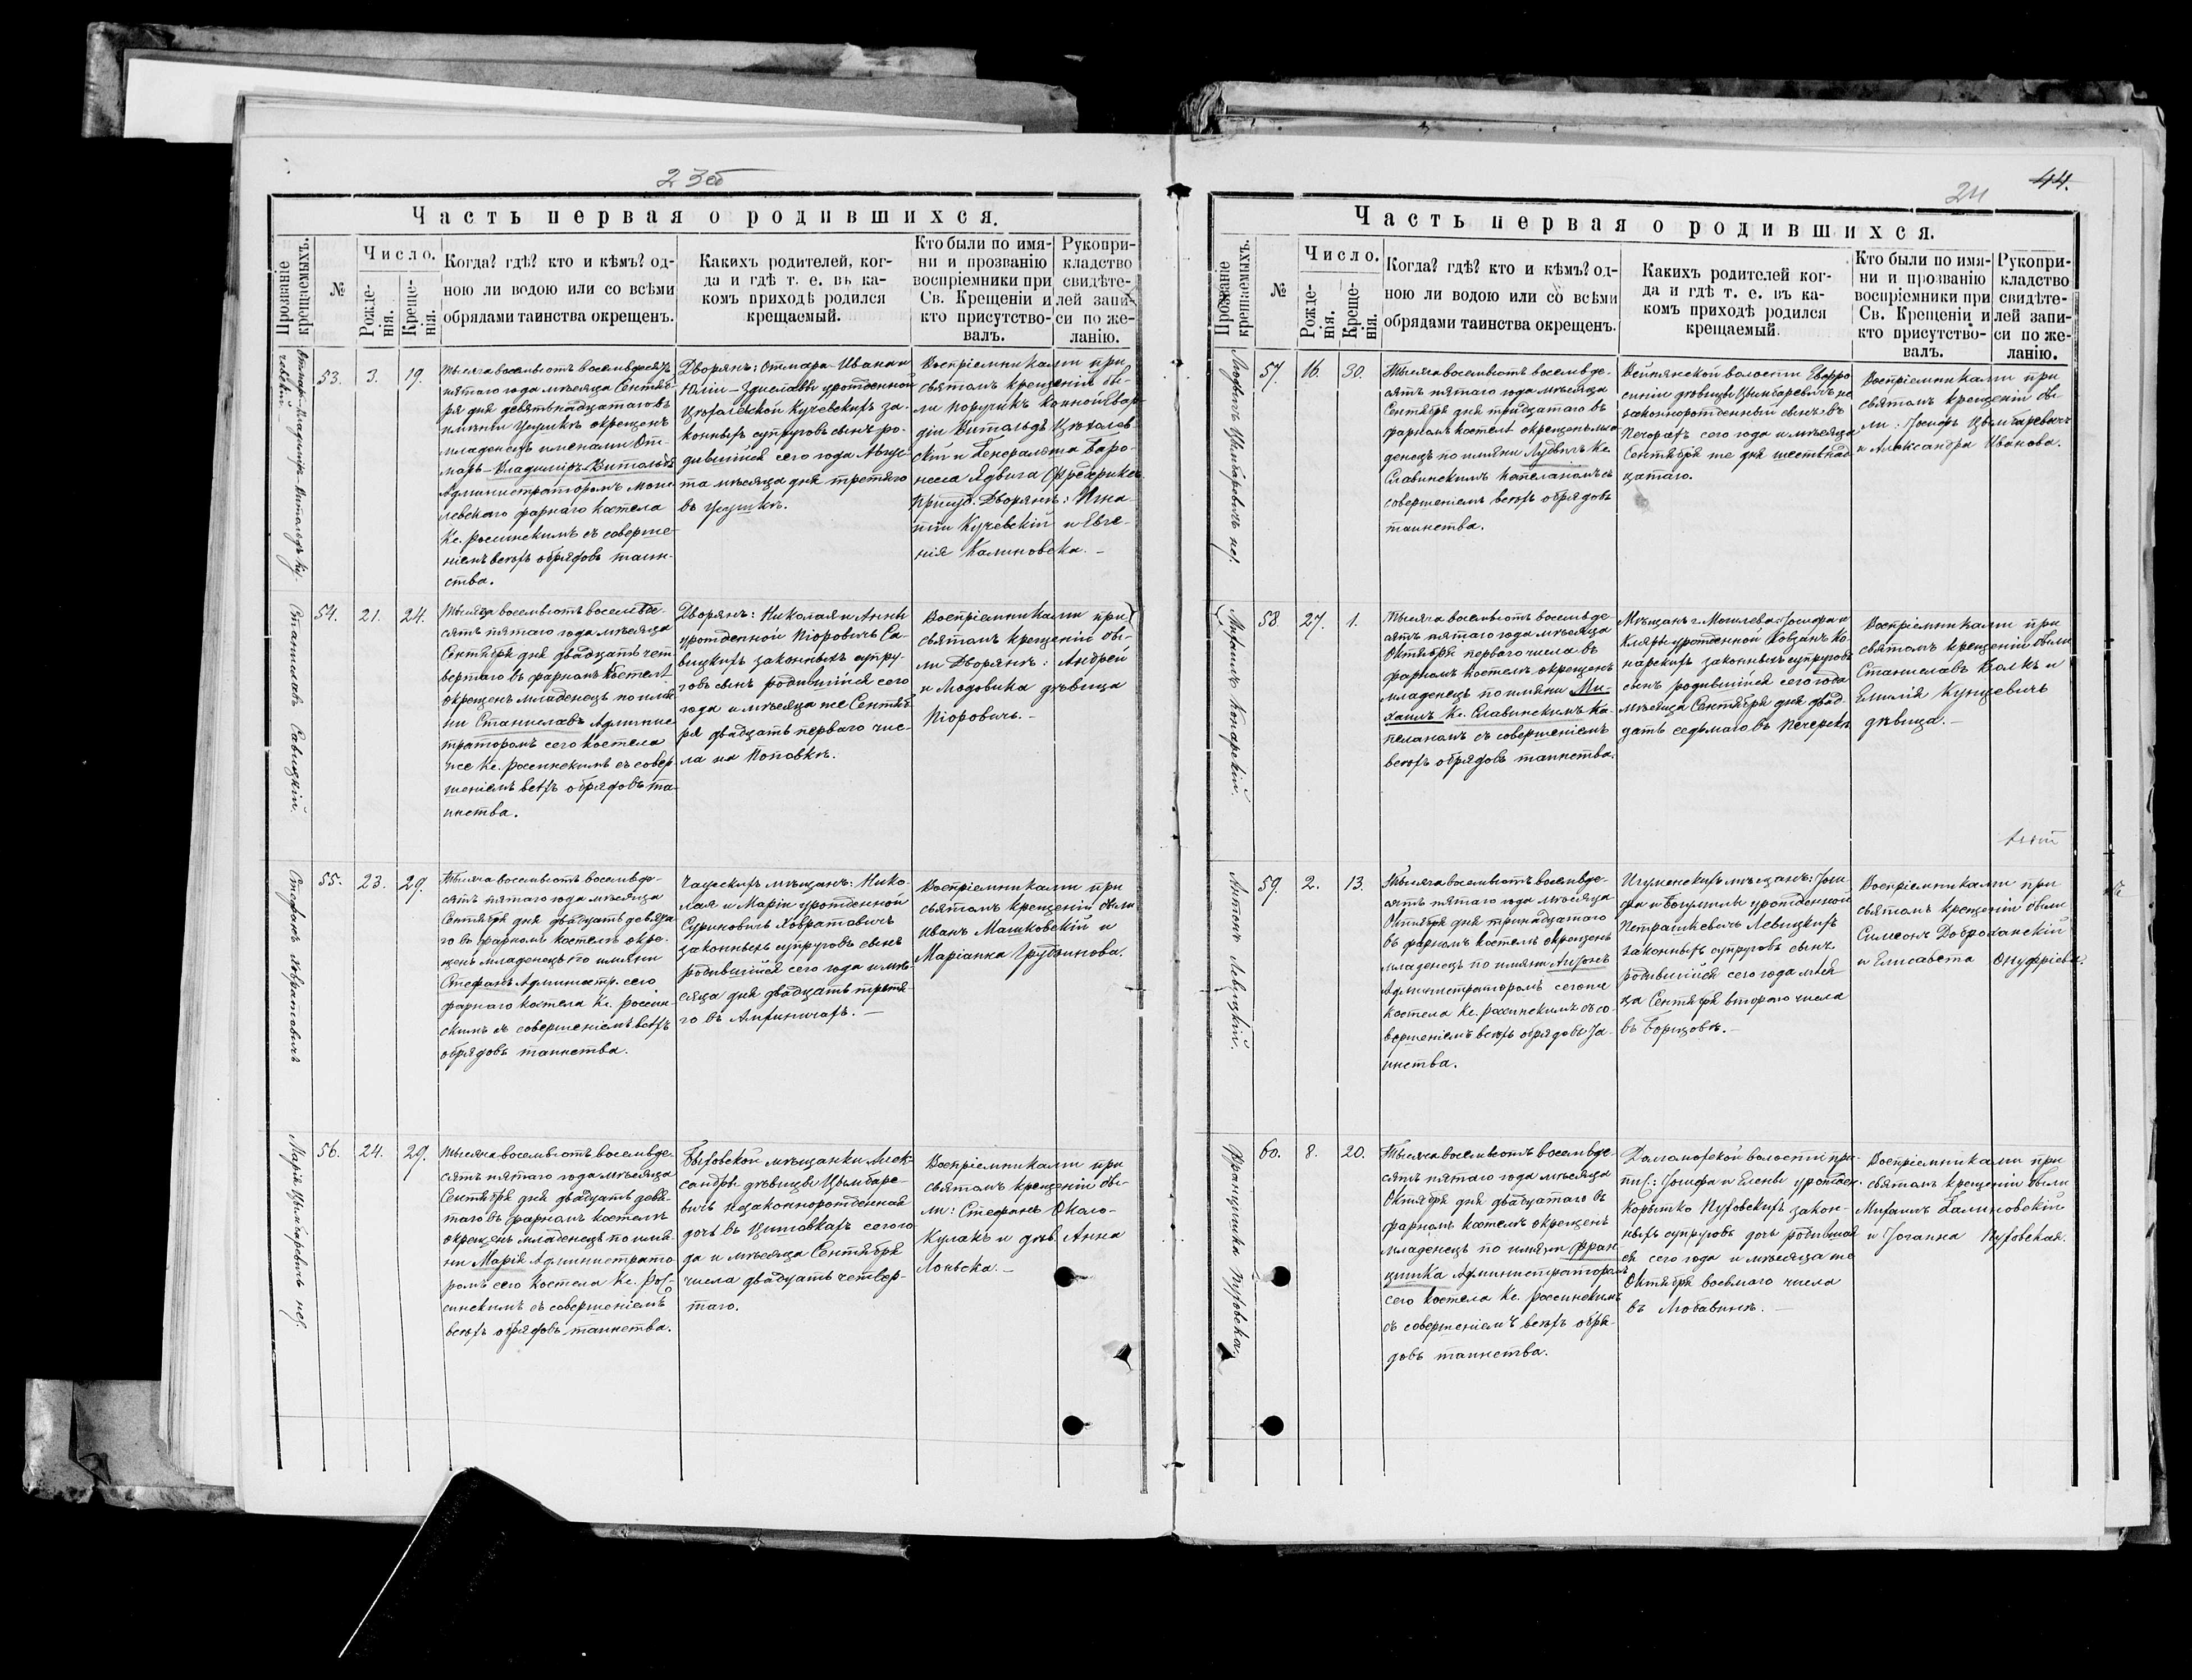 23об
Часть первая о родившихся.
Прозваніе крещаемыхъ.
№
Число.
Рожде-
нія.
Креще-
нія.
Когда? гдѣ? кто и кѣмъ? од-
ною ли водою или со всѣми
обрядами таинства окрещенъ.
Какихъ родителей, ког-
да и гдѣ т. е. въ ка-
комъ приходѣ родился
крещаемый.
Кто были по имя-
ни и прозванію
воспріемники при
Св. Крещеніи и
кто присутство-
валъ.
Рукопри-
кладство
свидѣте-
лей запи-
си по же-
ланію.
53.
3.
19.
Тысяча восемьсотъ восемьдесятъ
пятаго года мѣсяца Сентяб-
ря дня девятьнадцатаго въ
имѣніи окрещенъ
младенецъ именами От-
маръ-Владиміръ-Витольдъ
Администраторомъ Моги-
левскаго фарнаго костела
Кс. Россинскимъ съ соверше-
ніемъ всѣхъ обрядовъ таин-
ства.
Дворянъ: Отмара-Ивана и
Юліи-Здиславы урожденной
Кучевскихъ за-
конныхъ супруговъ сынъ ро-
дившійся сего года Авгус-
та мѣсяца дня третяго
въ
Воспріемниками при
святомъ крещеніи бы-
ли поручикъ конной гвар-
діи Витольдъ
скій и Генералша Баро-
несса Ядвига Фредерикс
Присут. Дворянъ: Игна
тій Кучевскій и Евге-
нія Калиновска. -
Станиславъ Савицкій.
54.
21.
24.
Тысяча восемьсотъ восемьде-
сятъ пятаго года мѣсяца
Сентября дня двадцать чет
вертаго въ фарномъ костелѣ
окрещенъ младенецъ по имя
ни Станиславъ Админис
траторомъ сего костела
же Кс. Россинскимъ съ совер-
шеніемъ всѣхъ обрядовъ та-
инства.
Дворянъ: Николая и Анны
урожденной Піоровичъ Са-
вицкихъ законныхъ супру-
говъ сынъ родившійся сего
года и мѣсяца же Сентяб
ря двадцать перваго чис-
ла на Поповкѣ.
Воспріемниками при
святомъ крещеніи бы-
ли Дворянъ: Андрей
и Людовика дѣвица
Піоровичъ. -
Стефанъ Ховратовичъ
55.
23.
29.
Тысяча восемьсотъ восемьде-
сятъ пятаго года мѣсяца
Сентября дня двадцать девята
го въ фарномъ костелѣ окре-
щенъ младенецъ по имяни
Стефанъ Администр. сего
фарнаго костела Кс. Россин-
скимъ съ совершеніемъ всѣхъ
обрядовъ таинства.
Чаусскихъ мѣщанъ: Нико-
лая и Маріи урожденной
Суриновичъ Ховратовичъ
законныхъ супруговъ сынъ
родившійся сего года и мѣ-
сяца дня двадцать третья
го въ -
Воспріемниками при
святомъ крещеніи были
Иванъ Машковскій и
Маріанна Грудзинова.
Марія Цымбаревичъ нез.
56.
24.
29.
Тысяча восемьсотъ восемьде
сятъ пятаго года мѣсяца
Сентября дня двадцать девя-
таго въ фарномъ костелѣ
окрещенъ младенецъ по имя
ни Марія Администрато
ромъ сего костела Кс. Рос-
синскимъ съ совершеніемъ
всѣхъ обрядовъ таинства.
Быховской мѣщанки Алек-
сандры дѣвицы Цымбаре-
вичъ незаконнорожденная
дочь въ сего го
да и мѣсяца Сентября
числа двадцать четвер-
таго.
Воспріемниками при
святомъ крещеніи бы-
ли: Стефанъ Около-
Кулакъ и дѣв. Анна
-
24
44.
Часть первая о родившихся.
Прозваніе крещаемыхъ.
№
Число.
Рожде-
нія.
Креще-
нія.
Когда? гдѣ? кто и кѣмъ? од-
ною ли водою или со всѣми
обрядами таинства окрещенъ.
Какихъ родителей ког-
да и гдѣ т. е. въ ка-
комъ приходѣ родился
крещаемый.
Кто были по имя-
ни и прозванію
воспріемники при
Св. Крещеніи и
кто присутство-
валъ.
Рукопри-
кладство
свидѣте-
лей запи-
си по же-
ланію.
57.
16.
30.
Тысяча восемьсотъ восемьде-
сятъ пятаго года мѣсяца
Сентября дня тридцатаго въ
фарномъ костелѣ окрещенъ мла
денецъ по имяни Людвигъ Кс.
Славинскимъ Капеланомъ съ
совершеніемъ всѣхъ обрядовъ
таинства.
Вейнянской волости Евфро
синіи дѣвицы Цымбаревичъ не
законнорожденный сынъ въ
Печорахъ сего года и мѣсяца
Сентября же дня шестьнад
цатаго.
Воспріемниками при
святомъ крещеніи бы-
ли: Іосифъ Цымбаревичъ
и Александра Иванова.
Михаилъ Конарскій.
58.
27.
1.
Тысяча восемьсотъ восемьде
сятъ пятаго года мѣсяца
Октября перваго числа въ
фарномъ костелѣ окрещенъ
младенецъ по имяни Ми-
хаилъ Кс. Славинскимъ Ка-
пеланомъ съ совершеніемъ
всѣхъ обрядовъ таинства.
Мѣщанъ г. Могилева: Іосифа и
Клары урожденной Ковзанъ Ко-
нарскихъ законныхъ супруговъ
сынъ родившійся сего года
мѣсяца Сентября дня двад-
цать седьмаго въ Печерскѣ
Воспріемниками при
святомъ крещеніи были
Станиславъ Волкъ и
Емилія Кунцевичъ
дѣвица. -
Антонъ Левицкій.
59.
2.
13.
Тысяча восемьсотъ восемьде-
сятъ пятаго года мѣсяца
Октября дня тринадцатаго
въ фарномъ костелѣ окрещенъ
младенецъ по имяни Антонъ
Администраторомъ сего же
костела Кс. Россинскимъ съ со-
вершеніемъ всѣхъ обрядовъ та-
инства.
Игуменскихъ мѣщанъ: Іоси
фа и Богумилы урожденной
Петрашкевичъ Левицкихъ
законныхъ супруговъ сынъ
родившійся сего года мѣся
ца Сентября втораго числа
въ Борцовкѣ. -
Воспріемниками при
святомъ крещеніи были
Симеонъ Доброханскій
и Елисавета Онуфріева.
Францишка Пуховска.
60.
8.
20.
Тысяча восемьсотъ восемьде
сятъ пятаго года мѣсяца
Октября дня двадцатаго въ
фарномъ костелѣ окрещенъ
младенецъ по имяни Фран
цишка Администраторомъ
сего костела Кс. Россинскимъ
съ совершеніемъ всѣхъ обря-
довъ таинства.
волости при-
пис: Іосифа и Елены урожден.
Корытко Пуховскихъ закон-
ныхъ супруговъ дочь родившая
ся сего года и мѣсяца же
Октября восьмаго числа
въ Любавинѣ. -
Воспріемниками при
святомъ крещеніи были
Михаилъ Калиновскій
и Іоганна Пуховская.